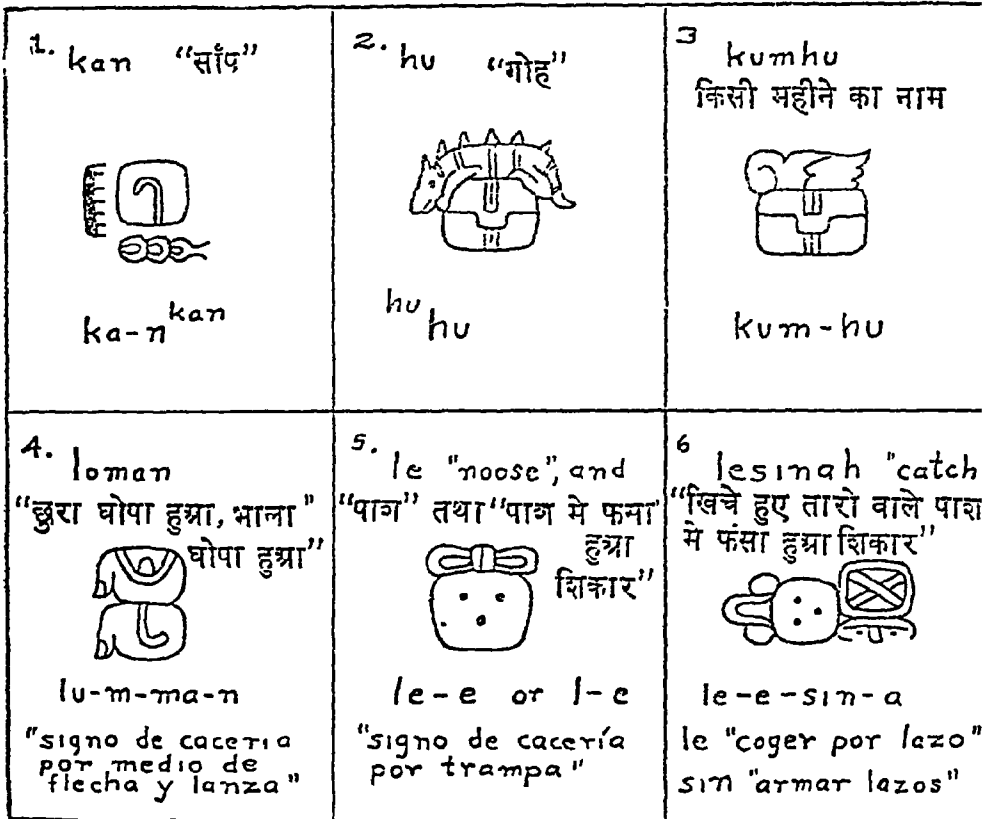 1. kan "साँप"
ka-n kan
2. hu "गोह"
hu hu
3 kumhu
किसी महीने का नाम
kum-hu
4. loman
"छुरा घोपा हुआ, भाला"
घोपा हुआ"
lu-m-ma-n
"signo de caceria
por medio de
flecha y lanza"
5. le "noose", and
"पाश" तथा "पाश मे फसा
हुआ
शिकार"
le-e or l-e
"signo de cacería
por trampa"
6 lesinah "catch
"खिचे हुए तारो वाले पाश
मे फंसा हुआ शिकार"
le-e-sin-a
le "coger por lazo"
sin "armar lazos"